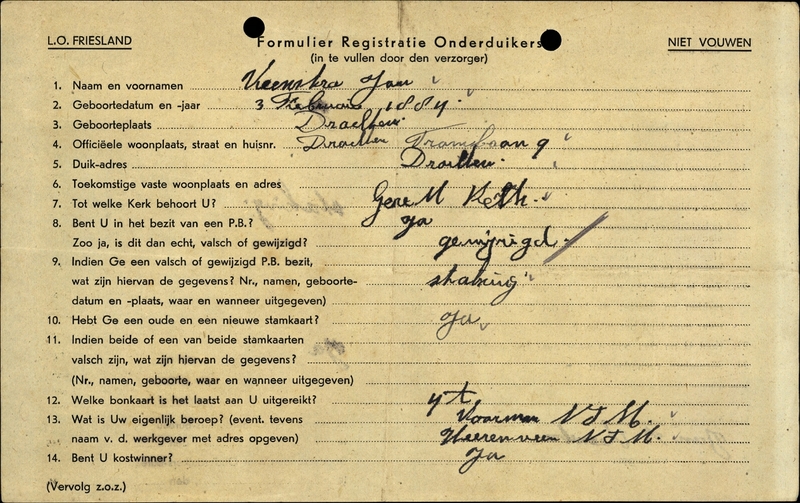 L.O. FRIESLAND
Formulier Registratie Onderduikers
NIET VOUWEN
(in te vullen door den verzorger)
1. Naam en voornamen Veenstra Jan
2. Geboortedatum en -jaar 3 Februari 1884
3. Geboorteplaats Drachten
4. Officiëele woonplaats, straat en huisnr. Drachten Trambaan 9
5. Duik-adres Drachten
6. Toekomstige vaste woonplaats en adres
7. Tot welke Kerk behoort U?
8. Bent U in het bezit van een P.B.? Ja
Zoo ja, is dit dan echt, valsch of gewijzigd? gewijzigd
9. Indien Ge een valsch of gewijzigd P.B. bezit,
wat zijn hiervan de gegevens? Nr., namen, geboorte-
datum en -plaats, waar en wanneer uitgegeven)
10. Hebt Ge een oude en een nieuwe stamkaart? Ja
11. Indien beide of een van beide stamkaarten
valsch zijn, wat zijn hiervan de gegevens?
(Nr., namen, geboorte, waar en wanneer uitgegeven)
12. Welke bonkaart is het laatst aan U uitgereikt?
13. Wat is Uw eigenlijk beroep? (event. tevens Voorman N T M.
naam v. d. werkgever met adres opgeven) Heerenveen N T M.
14. Bent U kostwinner? Ja
(Vervolg z.o.z.)